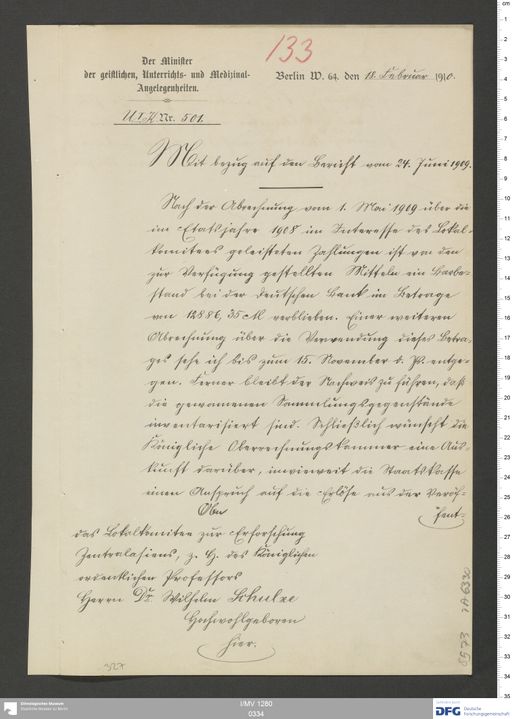 133
Der Minister
der geistlichen, Unterrichts- und Medizinal-
Angelegenheiten.
Berlin W. 64. den 18. Februar 1910.
U I K Nr. 501.
Mit bezug auf den Bericht vom 24. Juni 1909.
Nach der Abrechnung vom 1. Mai 1909 über die
im Etatsjahre 1908 im Interesse des Lokal-
komitees geleisteten Zahlungen ist von den
zur Verfügung gestellten Mitteln ein Barbe-
stand bei der Deutschen Bank im Betrage
von 12886,35 M verblieben. Einer weiteren
Abrechnung über die Verwendung dieses Betra-
ges sehe ich bis zum 15. November d. Js. entge-
gen. Ferner bleibt der Nachweis zu führen, daß
die gewonnenen Sammlungsgegenstände
inventarisiert sind. Schließlich wünscht die
Königliche Oberrechnungskammer eine Aus-
kunft darüber, inwieweit die Staatskasse
einen Anspruch auf die Erlöse aus der Veröf-
fent-
An
das Lokalkomitee zur Erforschung
Zentralasiens, z. H. des Königlichen
ordentlichen Professors
Herrn Dr. Wilhelm Schulze
Hochwohlgeboren
hier.
327
Ethnologisches Museum
Staatliche Museen zu Berlin
I/MV 1260
0334
DFG Deutsche
Forschungsgemeinschaft